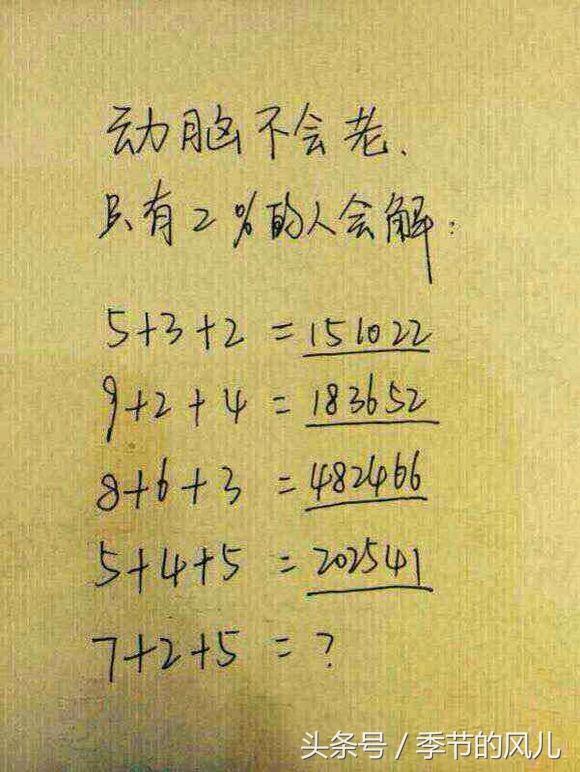 动脑不会老.
只有2%的人会解:
5+3+2=151022
9+2+4=183652
8+6+3=482466
5+4+5=202541
7+2+5=?
头条号/季节的风儿